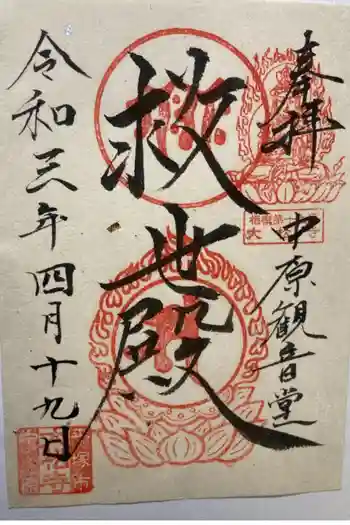 奉拝
中原観音堂
救世殿
令和三年四月十九日
平塚市